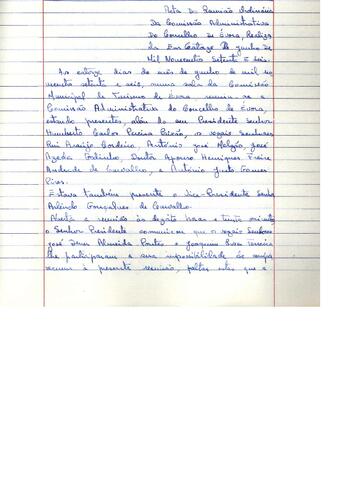 Acta Da Reunião Ordinária
Da Comissão Administrativa
Do Concelho De Évora, Realiza
da Em Catorze De Junho De
Mil Novecentos Setenta E Seis.
Aos catorze dias do mês de Junho de mil no
vecentos setenta e seis, numa sala da Comissão
Municipal de Turismo de Évora, reuniu-se a
Comissão Administrativa do Concelho de Évora,
estando presentes, além do seu Presidente Senhor
Humberto Carlos Pereira, os vogais Senhores
Rui Araújo Cordeiro, António José, José
Godinho, Doutor Afonso Henriques Freire
Andrade de Carvalho, e António Justo Gomes
Pires.
Estava também presente o Vice-Presidente Senhor
Arlindo Gonçalves de Carvalho.
Aberta a reunião às dezoito horas e trinta minutos
o Senhor Presidente comunicou que os vogais Senhores
José Almeida e Joaquim Teixeira
lhe participaram a sua impossibilidade de compa
recerem à presente reunião, faltas estas que a